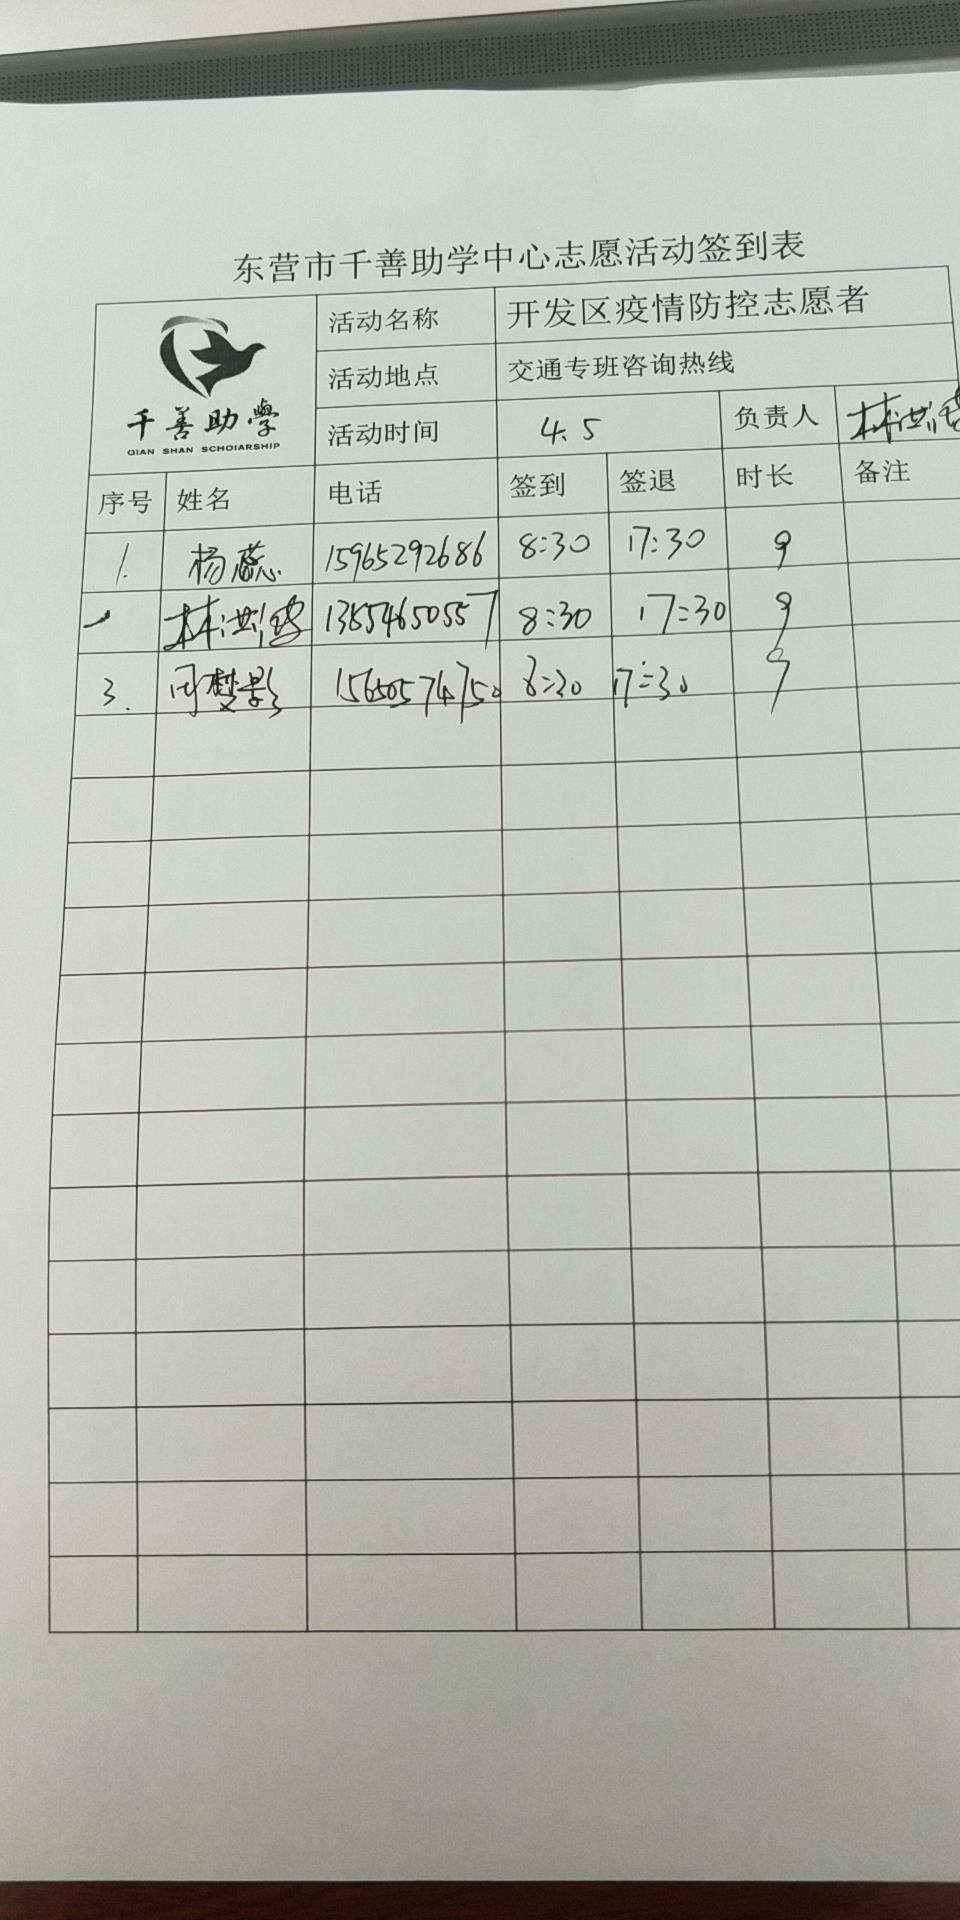 东营市千善助学中心志愿活动签到表
千善助學
QIAN SHAN SCHOIARSHIP
活动名称 开发区疫情防控志愿者
活动地点 交通专班咨询热线
活动时间 4.5 负责人 林洪
序号 姓名 电话 签到 签退 时长 备注
1. 杨蕊 15965292686 8:30 17:30 9
林洪 13854650557 8:30 17:30 9
3. 周梦影 15650574750 8:30 17:30 9